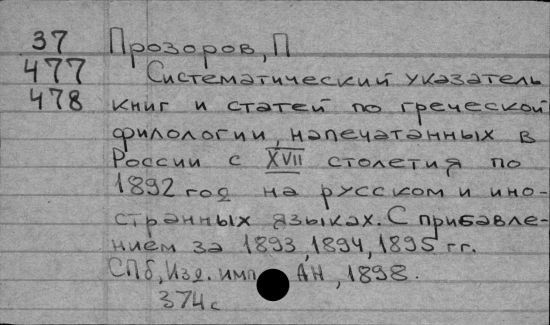 37 Прозоров, П
477 Систематический указатель
478 книг и статей по греческой
филологии, напечатанных в
России с XVII столетия по
1892 год на русском и ино-
странных языках. С прибавле-
нием за 1893, 1894, 1895 гг.
СПб, Изд. имп АН, 1898.
374с